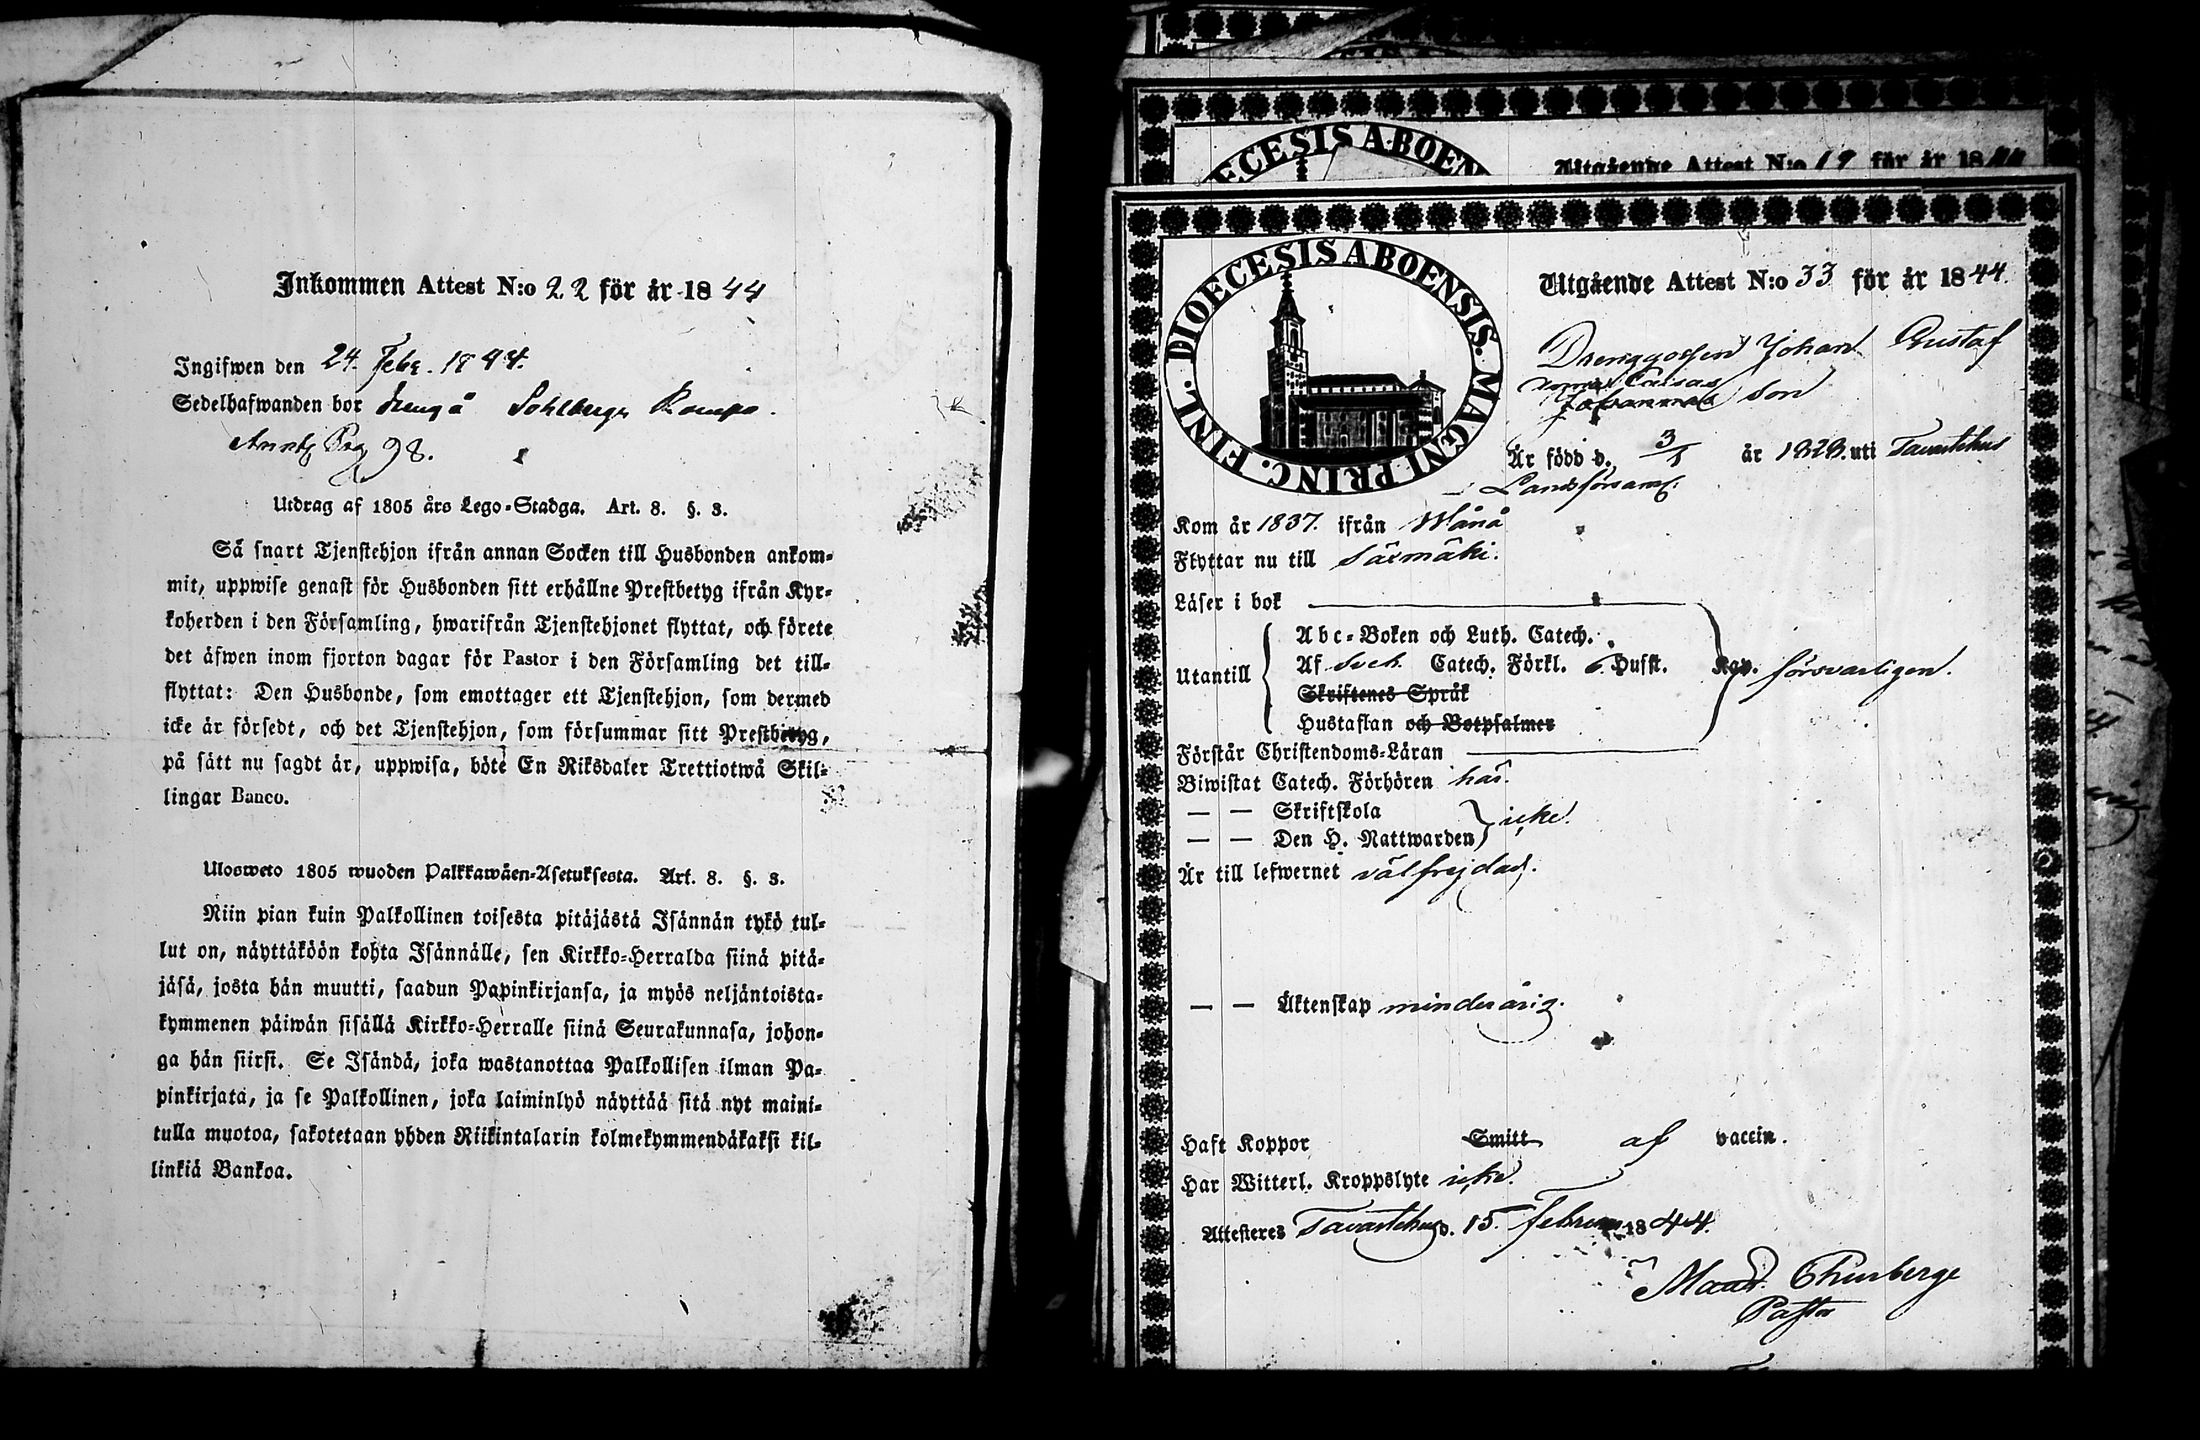 Inkommen Attest N:o 22 för år 1844
Ingifwen den 24. Febr. 1844.
Sedelhafwanden bor dräng å Sohlbergs Kompa.
Annt. Pag 98.
Utdrag af 1805 års Lego-Stadga. Art. 8. §. 3.
Så snart Tjenstehjon ifrån annan Socken till Husbonden ankom-
mit, uppwise genast för Husbonden sitt erhållne Prestbetyg ifrån Kyr-
koherden i den Församling, hwarifrån Tjenstehjonet flyttat, och förete
det äfwen inom fjorton dagar för Pastor i den Församling det till-
flyttat: Den Husbonde, som emottager ett Tjenstehjon, som dermed
icke är försedt, och det Tjenstehjon, som försummar sitt Prestbetyg,
på sätt nu sagdt är, uppwisa, böte En Riksdaler Trettiotwå Skil-
lingar Banco.
Ulosweto 1805 wuoden Palkkawäen-Asetuksesta. Art. 8. §. 3.
Niin pian kuin Palkollinen toisesta pitäjästä Isännän tykö tul-
lut on, näyttäköön kohta Isännälle, sen Kirkko-Herralda siinä pitä-
jäsä, josta hän muutti, saadun Papinkirjansa, ja myös neljäntoista-
kymmenen päiwän sisällä Kirkko-Herralle siinä Seurakunnasa, johon-
ga hän siirsi. Se Isändä, joka wastanottaa Palkollisen ilman Pa-
pinkirjata, ja se Palkollinen, joka laiminlyö näyttää sitä nyt maini-
tulla muotoa, sakotetaan yhden Riikintalarin kolmekymmendäkaksi kil-
linkiä Bankoa.
Utgående Attest N:o 19 för år 1844
DIOECESIS ABOENSIS. MAGNI PRINC. FINL.
Utgående Attest N:o 33 för år 1844.
Drenggossen Johan Gustaf
Caisas
Johannes son
Är född d. 3/1 år 1828. uti Tavastehus
Landsförsaml.
Kom år 1837. ifrån Wånå
Flyttar nu till Säxmäki.
Läser i bok
Utantill
Abc-Boken och Luth. Catech.
Af Sveb. Catech. Förkl. 6. Hufst. Kap. försvarligen.
Skriftenes Språk
Hustaflan och Botpsalmer
Förstår Christendoms-Läran
Biwistat Catech. Förhören här.
— — Skriftskola
— — Den H. Nattwarden icke.
Är till lefwernet välfrejdad.
— — Äktenskap minderårig.
Haft Koppor Smitt af vaccin.
Har Witterl. Kroppslyte icke.
Attesteres Tavastehus d. 15. Februari 1844.
Thurberge
Pastor